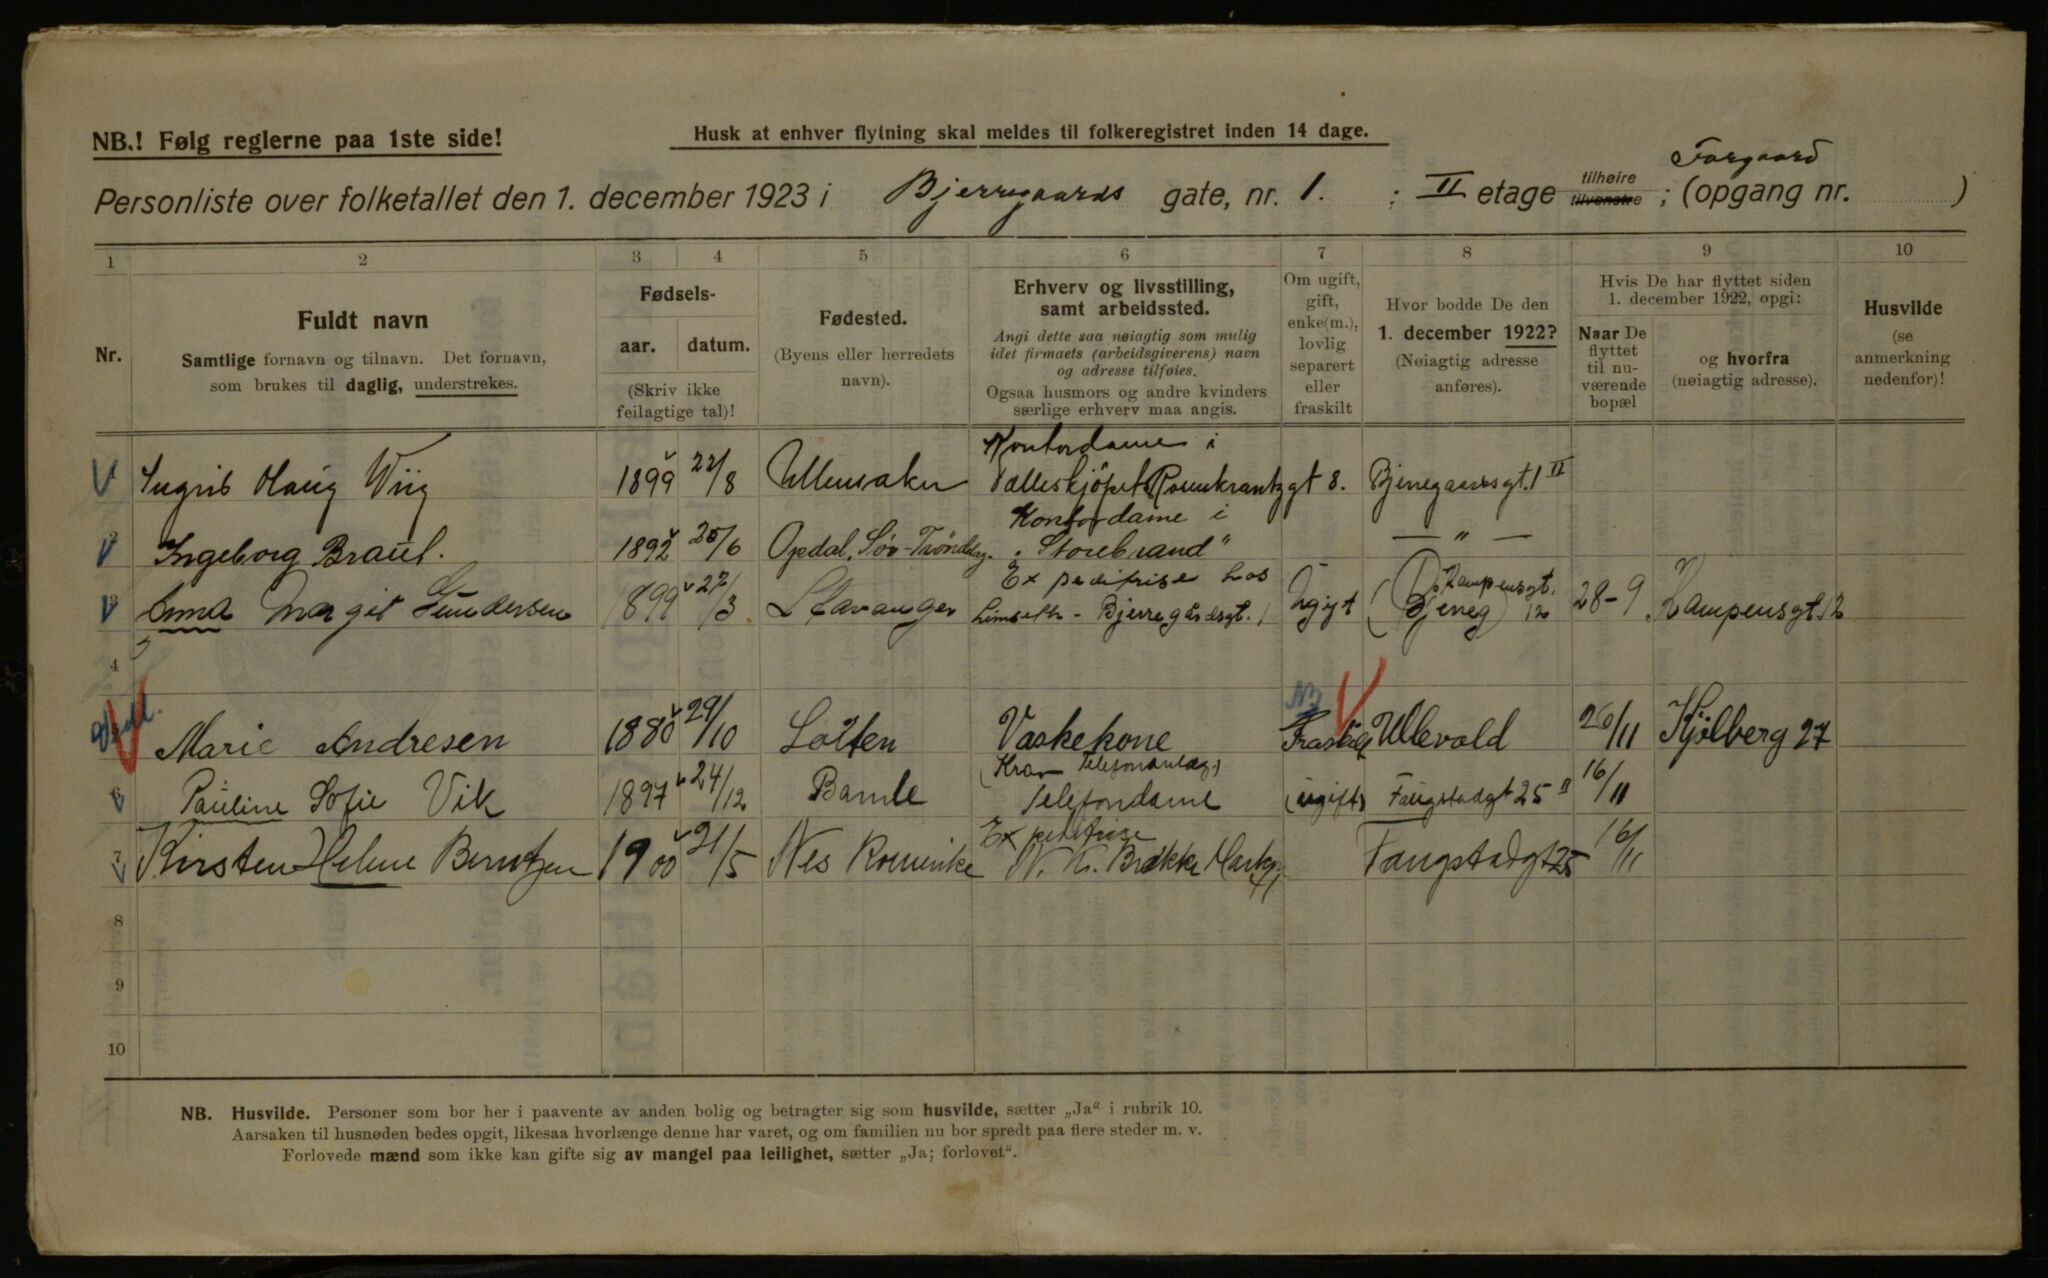 NB.! Følg reglerne paa 1ste side!
Husk at enhver flytning skal meldes til folkeregistret inden 14 dage.
Forgaard
Personliste over folketallet den 1. december 1923 i Bjerregaards gate, nr. 1. ; II etage tilhøire tilvenstre ; (opgang nr. )
1 2 3 4 5 6 7 8 9 10
Nr.
Fuldt navn
Samtlige fornavn og tilnavn. Det fornavn,
som brukes til daglig, understrekes.
Fødsels-
aar. datum.
(Skriv ikke
feilagtige tal)!
Fødested.
(Byens eller herredets
navn).
Erhverv og livsstilling,
samt arbeidssted.
Angi dette saa nøiagtig som mulig
idet firmaets (arbeidsgiverens) navn
og adresse tilføies.
Ogsaa husmors og andre kvinders
særlige erhverv maa angis.
Om ugift,
gift,
enke(m.),
lovlig
separert
eller
fraskilt
Hvor bodde De den
1. december 1922?
(Nøiagtig adresse
anføres).
Hvis De har flyttet siden
1. december 1922, opgi:
Naar De
flyttet
til nu-
værende
bopæl
og hvorfra
(nøiagtig adresse).
Husvilde
(se
anmerkning
nedenfor)!
Kontordame i
1 Ingrid Haug Wiig 1899 22/8 Ullensaker Fælleskjøpet Rosenkrantzgt 8. Bjerregaardsgt. 1 II
Kontordame i
2 Ingeborg Braut. 1892 25/6 Opdal, Sør-Trøndelag. "Storebrand" — " —
Expeditrise hos
3 Anna Margit Gundersen 1899 27/3 Stavanger Limseth - Bjerregårdsgt. 1 Ugift Kampensgt. 12 28-9 Kampensgt. 12
4
5 Marie Andresen 1880 29/10 Løiten Vaskekone Fraskilt Ullevold 26/11 Kjølberg 27
(Kra Telefonanlæg)
6 Pauline Sofie Vik 1897 24/12 Bamle Telefondame (ugift) Faugstadgt 25 II 16/11
Expeditrise
7 Kirsten Helene Berntzen 1900 21/5 Nes Romerike N. K. Brække Markv. Faugstadgt 25 16/11
8
9
10
NB. Husvilde. Personer som bor her i paavente av anden bolig og betragter sig som husvilde, sætter „Ja“ i rubrik 10.
Aarsaken til husnøden bedes opgit, likesaa hvorlænge denne har varet, og om familien nu bor spredt paa flere steder m. v.
Forlovede mænd som ikke kan gifte sig av mangel paa leilighet, sætter „Ja; forlovet“.